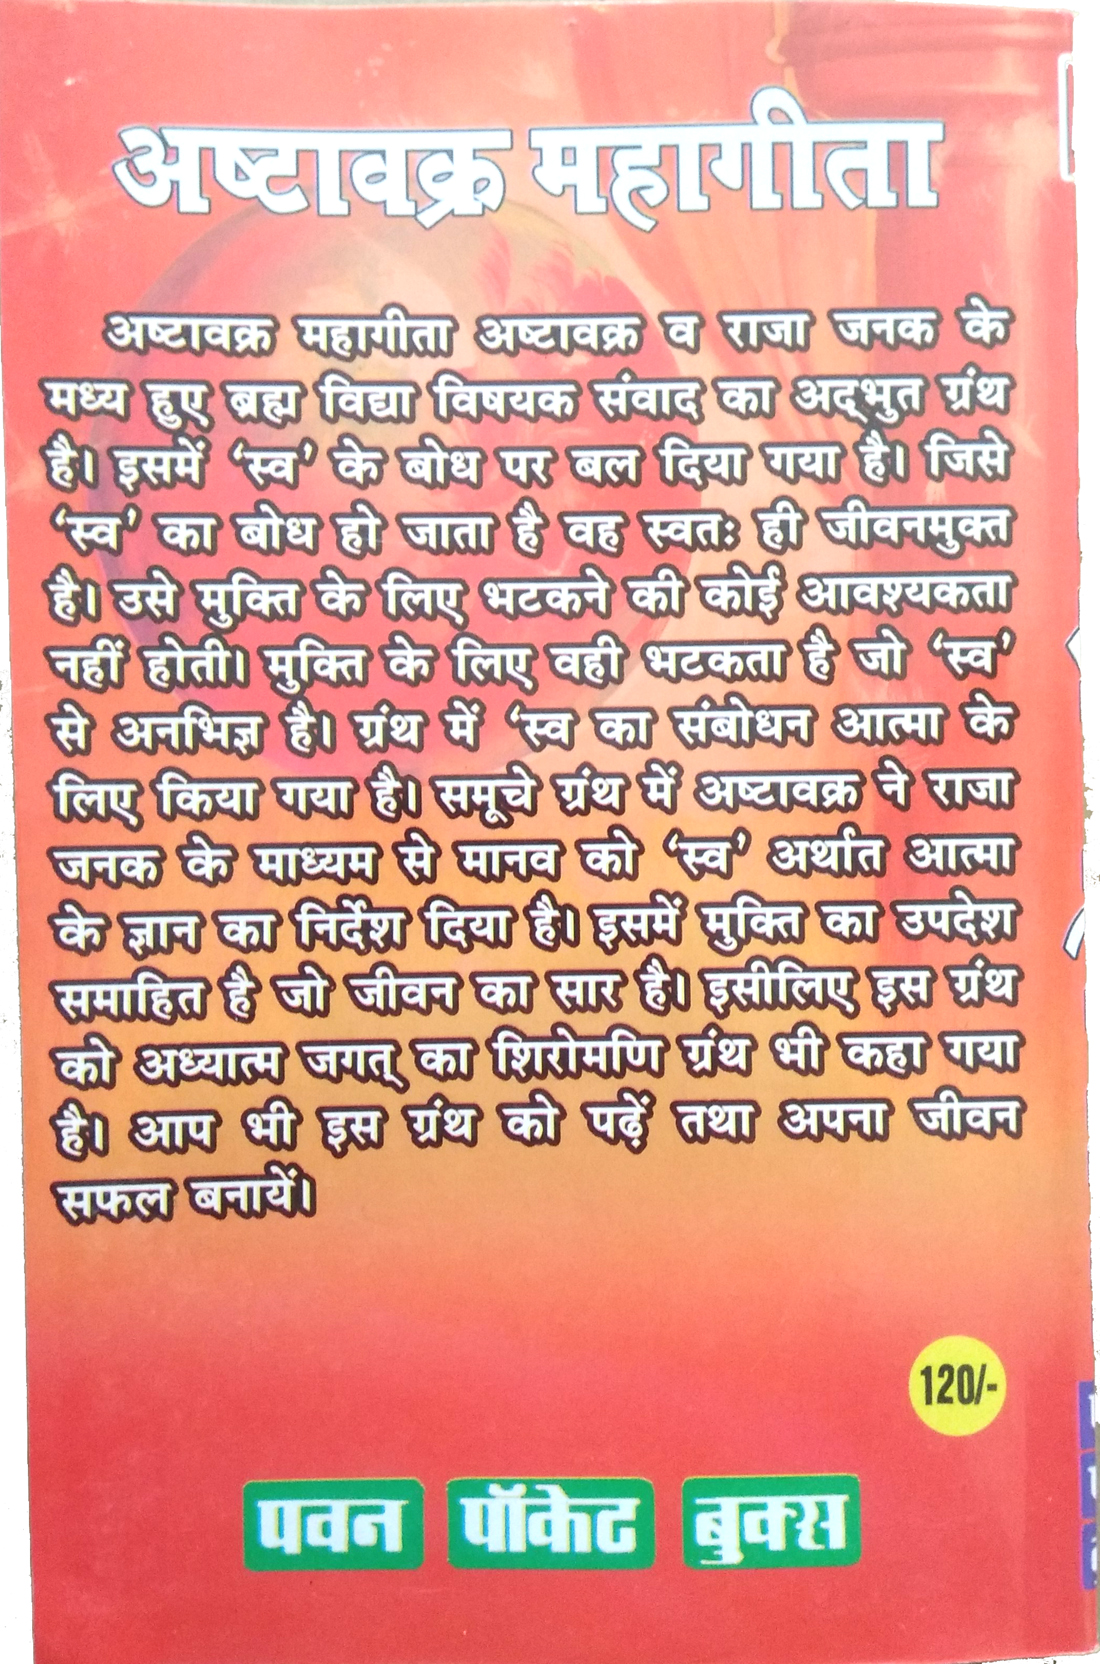 अष्टावक्र महागीता
अष्टावक्र महागीता अष्टावक्र व राजा जनक के
मध्य हुए ब्रह्म विद्या विषयक संवाद का अद्भुत ग्रंथ
है। इसमें ‘स्व’ के बोध पर बल दिया गया है। जिसे
‘स्व’ का बोध हो जाता है वह स्वतः ही जीवनमुक्त
है। उसे मुक्ति के लिए भटकने की कोई आवश्यकता
नहीं होती। मुक्ति के लिए वही भटकता है जो ‘स्व’
से अनभिज्ञ है। ग्रंथ में ‘स्व का संबोधन आत्मा के
लिए किया गया है। समूचे ग्रंथ में अष्टावक्र ने राजा
जनक के माध्यम से मानव को ‘स्व’ अर्थात आत्मा
के ज्ञान का निर्देश दिया है। इसमें मुक्ति का उपदेश
समाहित है जो जीवन का सार है। इसीलिए इस ग्रंथ
को अध्यात्म जगत् का शिरोमणि ग्रंथ भी कहा गया
है। आप भी इस ग्रंथ को पढ़ें तथा अपना जीवन
सफल बनायें।
120/-
पवन पॉकेट बुक्स